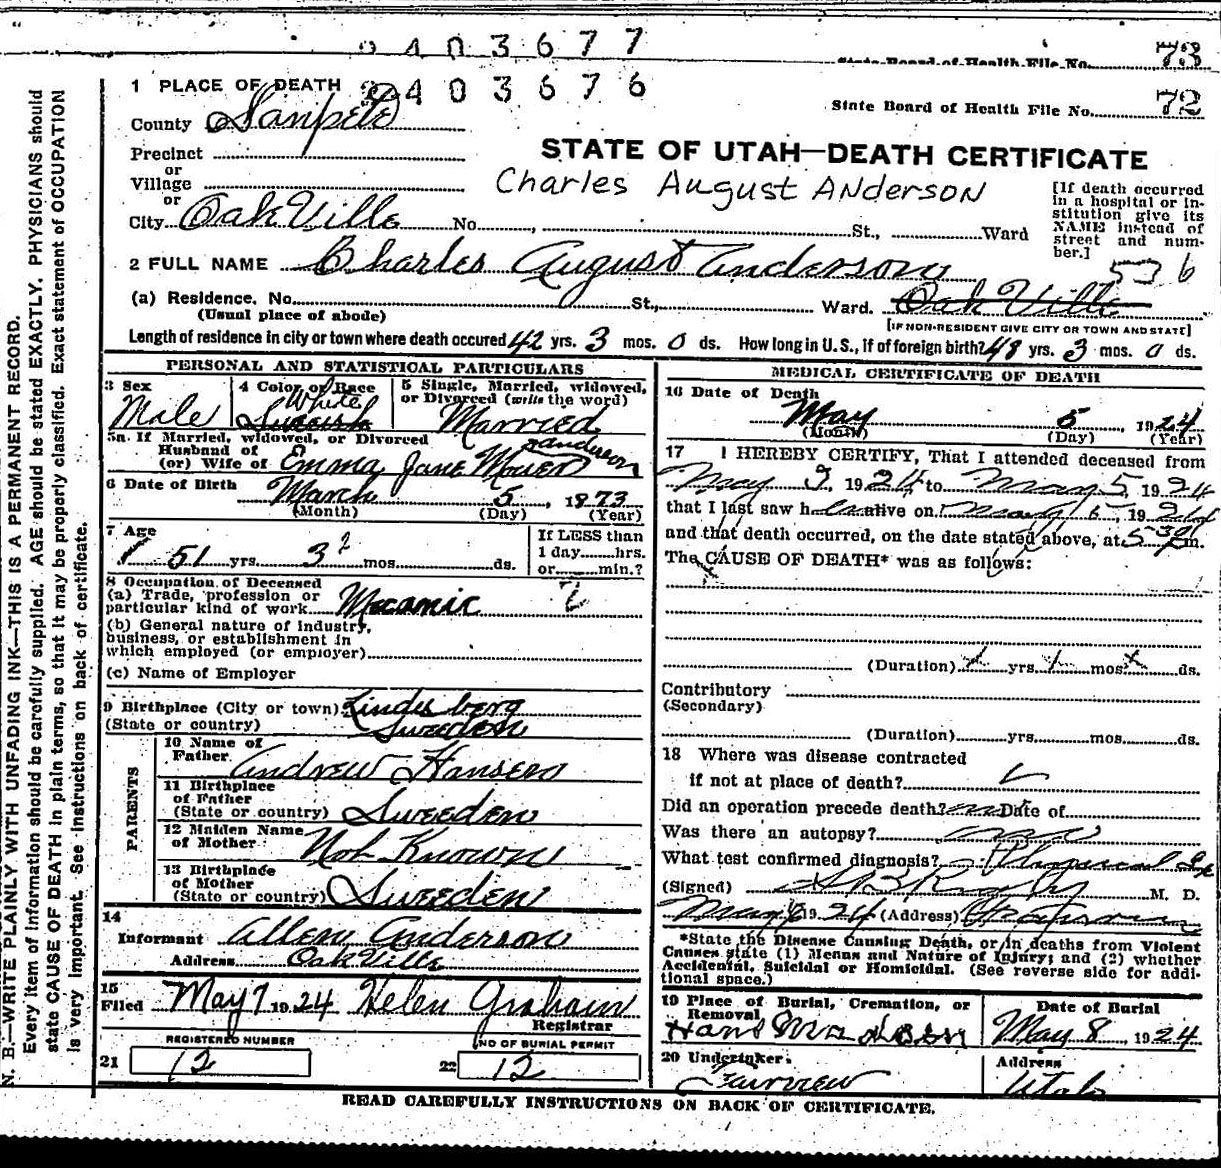 2403677
State Board of Health File No. 73
1 PLACE OF DEATH 2403676
State Board of Health File No. 72
County Sanpete
STATE OF UTAH—DEATH CERTIFICATE
Precinct
or
Village
Charles August Anderson
[If death occurred in a hospital or institution give its NAME instead of street and number.]
or
City OakVille No. , St., Ward
2 FULL NAME Charles August Anderson
536
(a) Residence. No. St., Ward. Oak Ville
(Usual place of abode) [IF NON-RESIDENT GIVE CITY OR TOWN AND STATE]
Length of residence in city or town where death occured 42 yrs. 3 mos. 0 ds. How long in U. S., if of foreign birth? 48 yrs. 3 mos. 0 ds.
PERSONAL AND STATISTICAL PARTICULARS
3 Sex
Male
4 Color or Race
White
Sweeish
5 Single, Married, widowed, or Divorced (write the word)
Married
5a. If Married, widowed, or Divorced
Husband of
(or) Wife of Emma Jane Anderson
6 Date of Birth March 5, 1873
(Month) (Day) (Year)
7 Age
51 yrs. 3 2 mos. ds.
If LESS than
1 day hrs.
or min.?
8 Occupation of Deceased
(a) Trade, profession or
particular kind of work Mecamic
(b) General nature of industry,
business, or establishment in
which employed (or employer)
(c) Name of Employer
9 Birthplace (City or town) Lindesberg
(State or country) Sweeden
PARENTS
10 Name of
Father Andrew Hansen
11 Birthplace
of Father
(State or country) Sweeden
12 Maiden Name
of Mother Not Known
13 Birthplace
of Mother
(State or country) Sweeden
14
Informant Allen Anderson
Address OakVille
15
Filed May 7 1924 Helen Graham
Registrar
REGISTERED NUMBER
21 12
NO OF BURIAL PERMIT
22 12
MEDICAL CERTIFICATE OF DEATH
16 Date of Death
May 5, 1924
(Month) (Day) (Year)
17 I HEREBY CERTIFY, That I attended deceased from
May 3, 1924, to May 5, 1924
that I last saw h alive on May 5, 1924
and that death occurred, on the date stated above, at 5-30 Pm.
The CAUSE OF DEATH* was as follows:
(Duration) x yrs. x mos. x ds.
Contributory
(Secondary)
(Duration) yrs. mos. ds.
18 Where was disease contracted
if not at place of death?
Did an operation precede death? no Date of
Was there an autopsy? no
What test confirmed diagnosis? Physical Ex
(Signed) M. D.
May 1924 (Address)
*State the Disease Causing Death, or in deaths from Violent
Causes state (1) Means and Nature of Injury; and (2) whether
Accidental, Suicidal or Homicidal. (See reverse side for additional space.)
19 Place of Burial, Cremation, or
Removal
Date of Burial
May 8, 1924
20 Undertaker
Fairview
Address
Utah
READ CAREFULLY INSTRUCTIONS ON BACK OF CERTIFICATE.
N. B.—WRITE PLAINLY WITH UNFADING INK—THIS IS A PERMANENT RECORD.
Every item of information should be carefully supplied. AGE should be stated EXACTLY. PHYSICIANS should
state CAUSE OF DEATH in plain terms, so that it may be properly classified. Exact statement of OCCUPATION
is very important. See instructions on back of certificate.